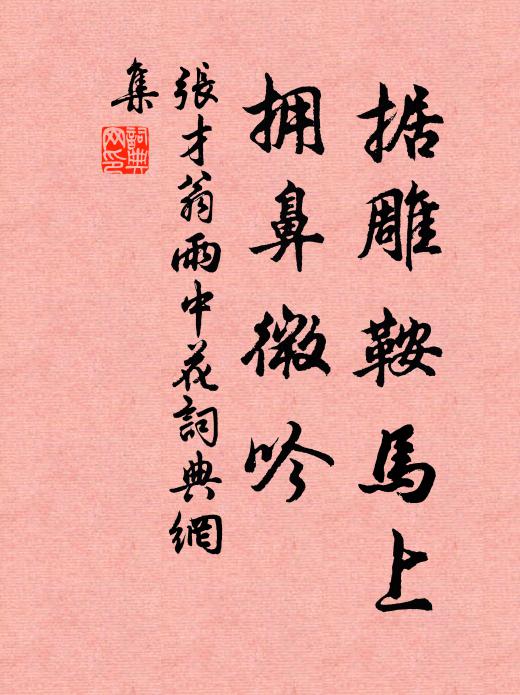 据雕鞍馬上
拥鼻微吟
張才翁雨中花詞典網
集
詞典網印